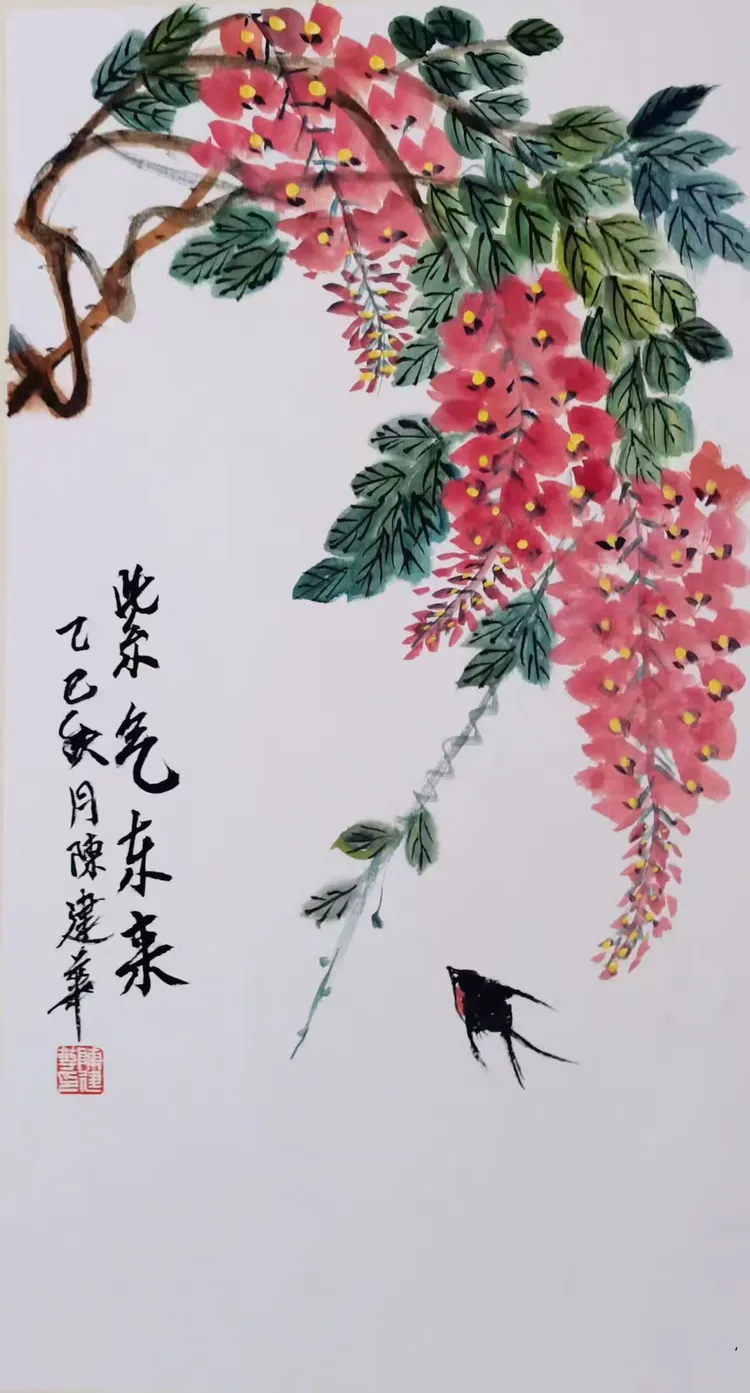 紫气东来
乙巳秋月陳建華
陳建華印